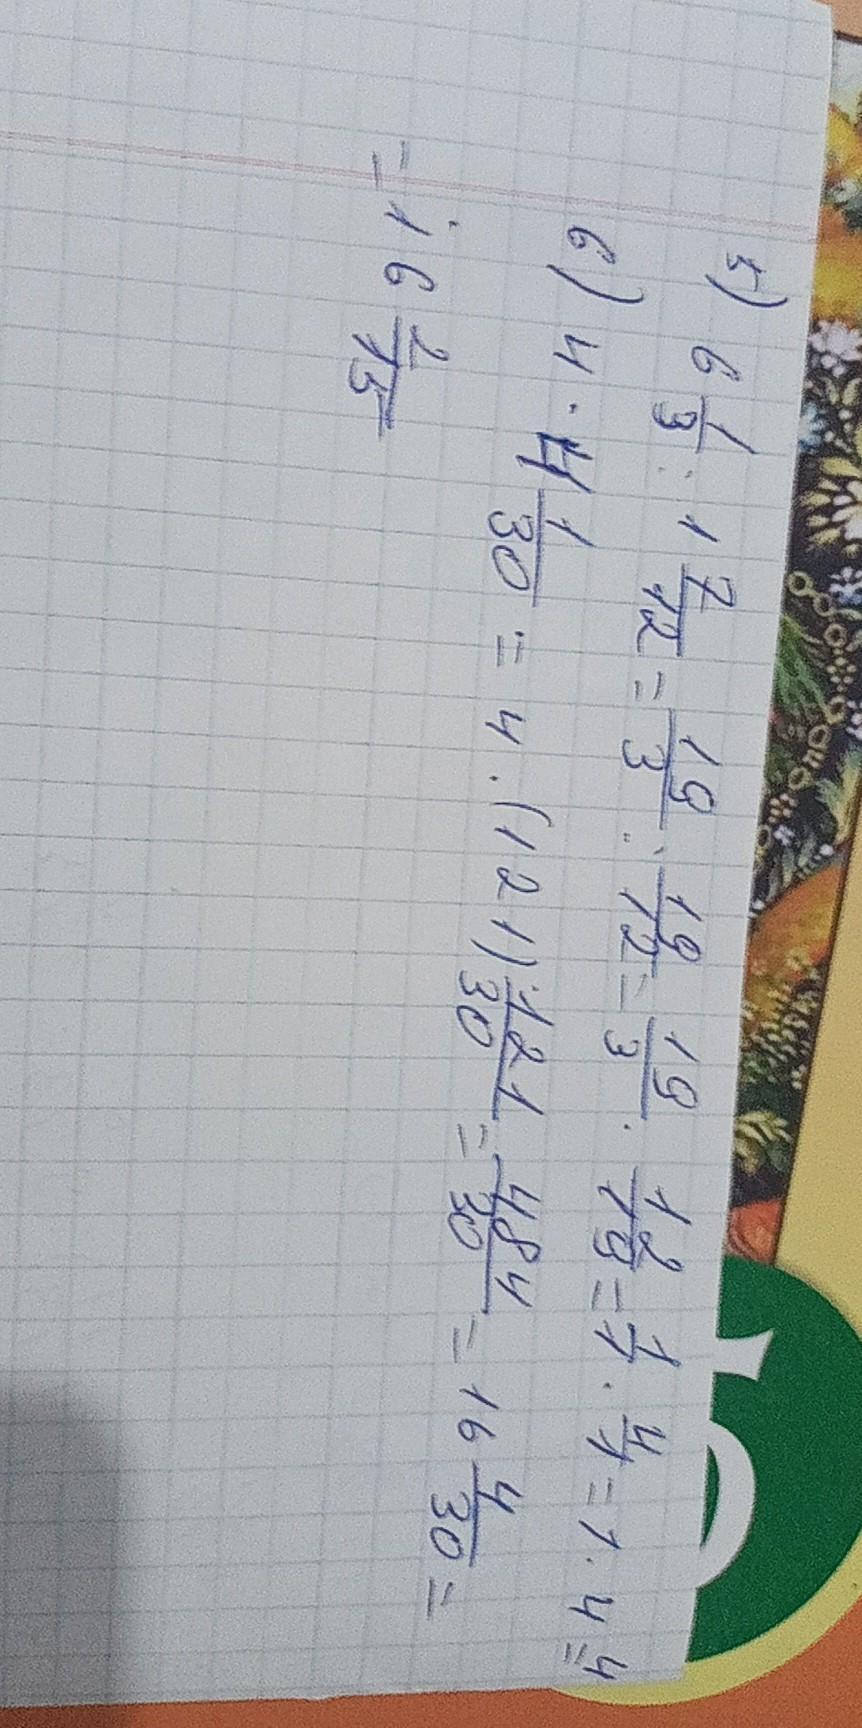 5) 6 1/3 : 1 7/12 = 19/3 : 19/12 = 19/3 · 12/19 = 1/1 · 4/1 = 1 · 4 = 4
6) 4 · 4 1/30 = 4 · (121) 121/30 = 484/30 = 16 4/30 =
= 16 2/15